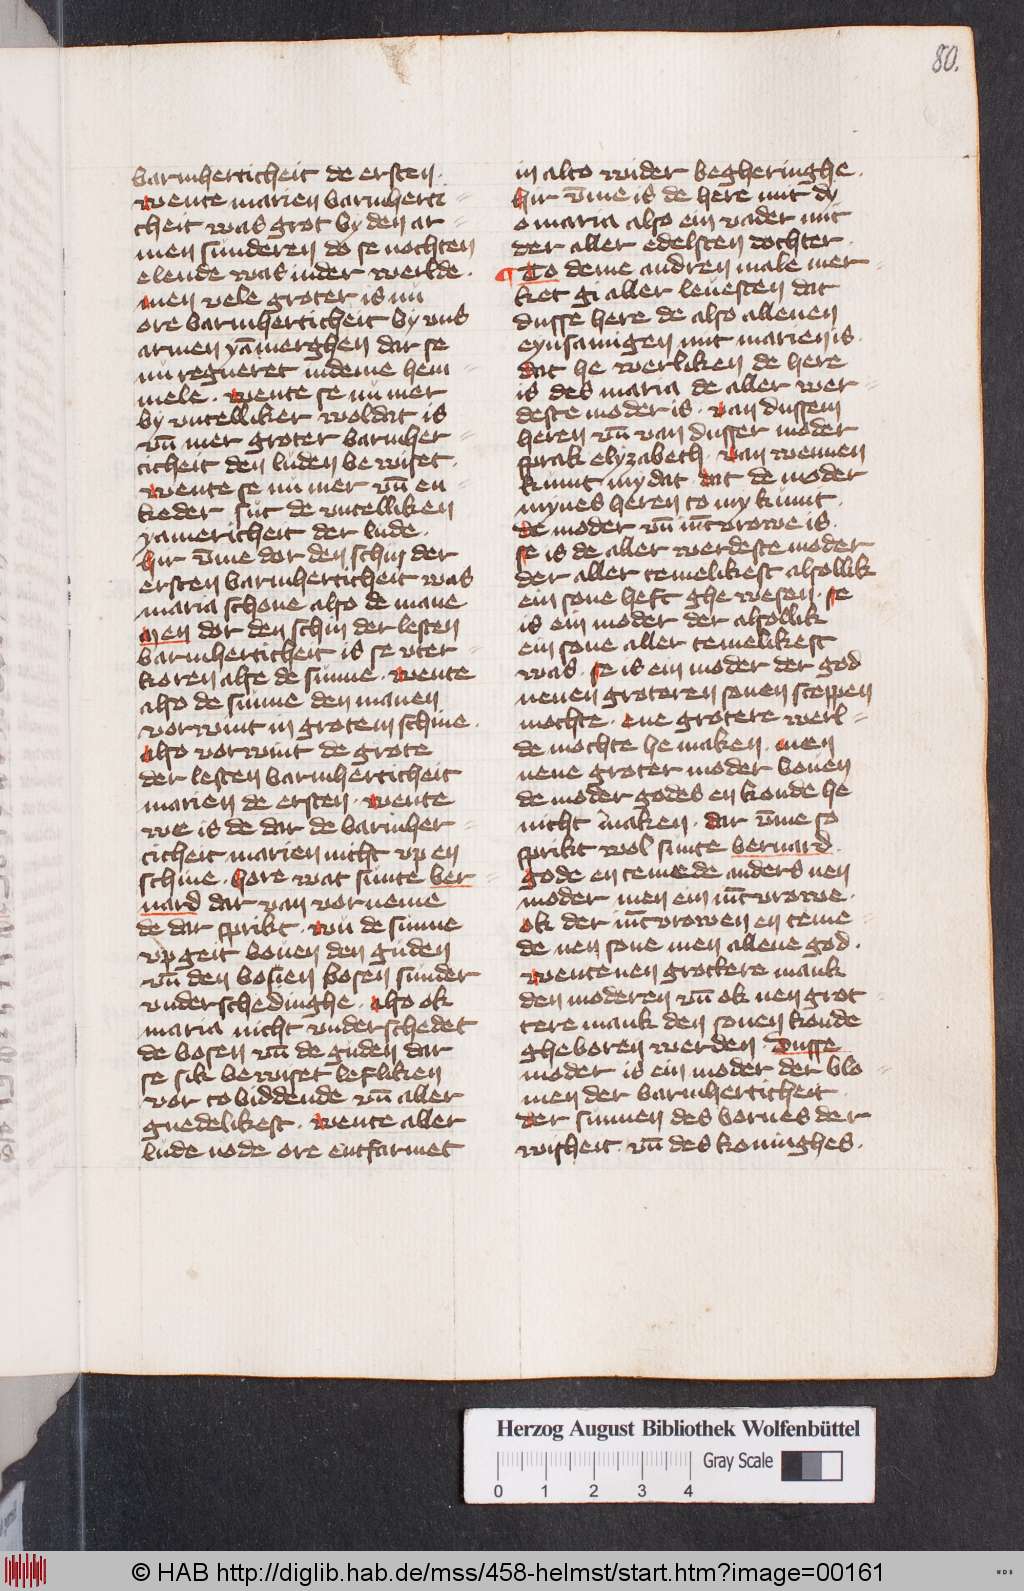 80.
barmherticheit de ersten.
wente marien barmherti
cheit was grot by den ar
men sunderen do se nochten
elende was in der werlde.
men vele groter is nu
ore barmherticheit by vns
armen yāmerghen dar se
nu regneret in deme hem
mele. wente se nu mer
by vntelliker woldat is
vn̄ mer groter barmher
ticheit den luden bewiset.
wente se nu mer vn̄ en
keder sut de vntelliken
yamericheit der lude.
hir v̄me dor den schin der
ersten barmherticheit was
maria schone alzo de mane
men dor den schin der lesten
barmherticheit is se vter
koren alse de sunne. wente
also de sunne den manen
vorwint in grotem schine.
also vorwint de grote
der lesten barmherticheit
marien de ersten. wente
we is de dar de barmher
ticheit marien nicht vp en
schine. hore wat sunte ber
nard dar van vorneme
de dar sprikt. wū de sunne
vp geit bouen den guden
vn̄ den bosen sunder
vnderschedinghe. also ok
maria nicht vnderschedet
de bosen vn̄ de guden dar
se sik bewiset leflikien
vor to biddende vn̄ aller
gnedelikest. wente aller
lude node ore entfarmet
in alto wider begheringhe.
hir v̄me is de here mit dy
o maria also ein vader mit
der aller edelsten dochter.
¶ To deme andren male mer
ket gi aller leuesten dat
dusse here de also alleuen
eynsamigen mit marien is.
dat he werliken de here
is des maria de aller wer
deste moder is. van dussem
heren vn̄ van dusser moder
sprak elyzabeth. van wennen
kumt my dat dat de moder
mynes heren to my kumt.
de moder vn̄ iūcvrowe is.
se is de aller werdeste moder
der aller temelikest alsollik
ein sone heft ghe wesen. se
is ein moder der alsollik
ein sone aller temelikest
was. se is ein moder der god
nenen groteren sonen sceppen
mochte. ene grotere werl
de mochte he maken. men
nene groter moder bouen
de moder godes en konde he
nicht maken. dar v̄me so
sprikt wol sunte bernard.
gode en temede anders nen
moder men ein iūcvrowe.
ok der iūcvrowen en teme
de nen sone men allene god.
wente nen grottere mank
den moderen vn̄ ok nen grot
tere mank den sonen konde
gheboren werden Dusse
moder is ein moder der blo
men der barmherticheit.
der sunnen des bornes der
wisheit. vn̄ des koninghes.
Herzog August Bibliothek Wolfenbüttel
Gray Scale
0 1 2 3 4
© HAB http://diglib.hab.de/mss/458-helmst/start.htm?image=00161